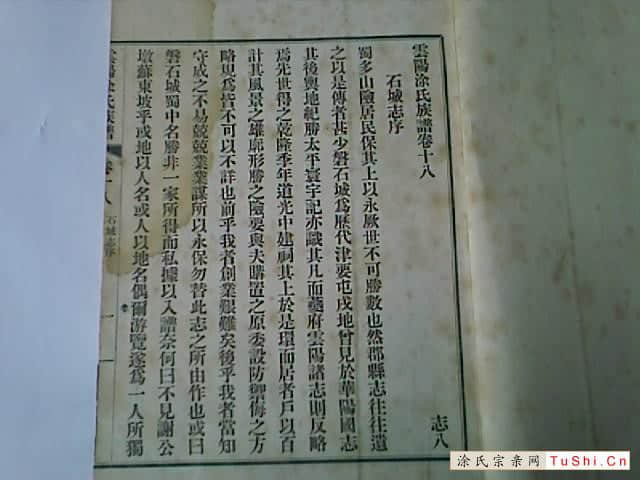 雲陽涂氏族譜卷十八
石城志序
志八
蜀多山險居民保其上以永厥世不可勝數也然郡縣志往往遺
之以是傳者甚少磐石城爲歷代津要屯戍地曾見於華陽國志
其後輿地紀勝太平寰宇記亦識其凡而夔府雲陽諸志則反略
焉先世得之乾隆季年道光中建祠其上於是環而居者戶以百
計其風景之雄廓形勝之險要與夫購置之原委設防禦侮之方
略規爲皆不可以不詳也前乎我者創業艱難矣後乎我者當知
守成之不易兢兢業業謀所以永保勿替此志之所由作也或曰
磐石城蜀中名勝非一家所得而私據以入譜奈何曰不見謝公
墩蘇東坡乎或地以人名或人以地名偶爾游覽遂爲一人所獨
雲陽涂氏族譜
卷十八
石城志序
一
涂氏宗亲网 TuShi.Cn